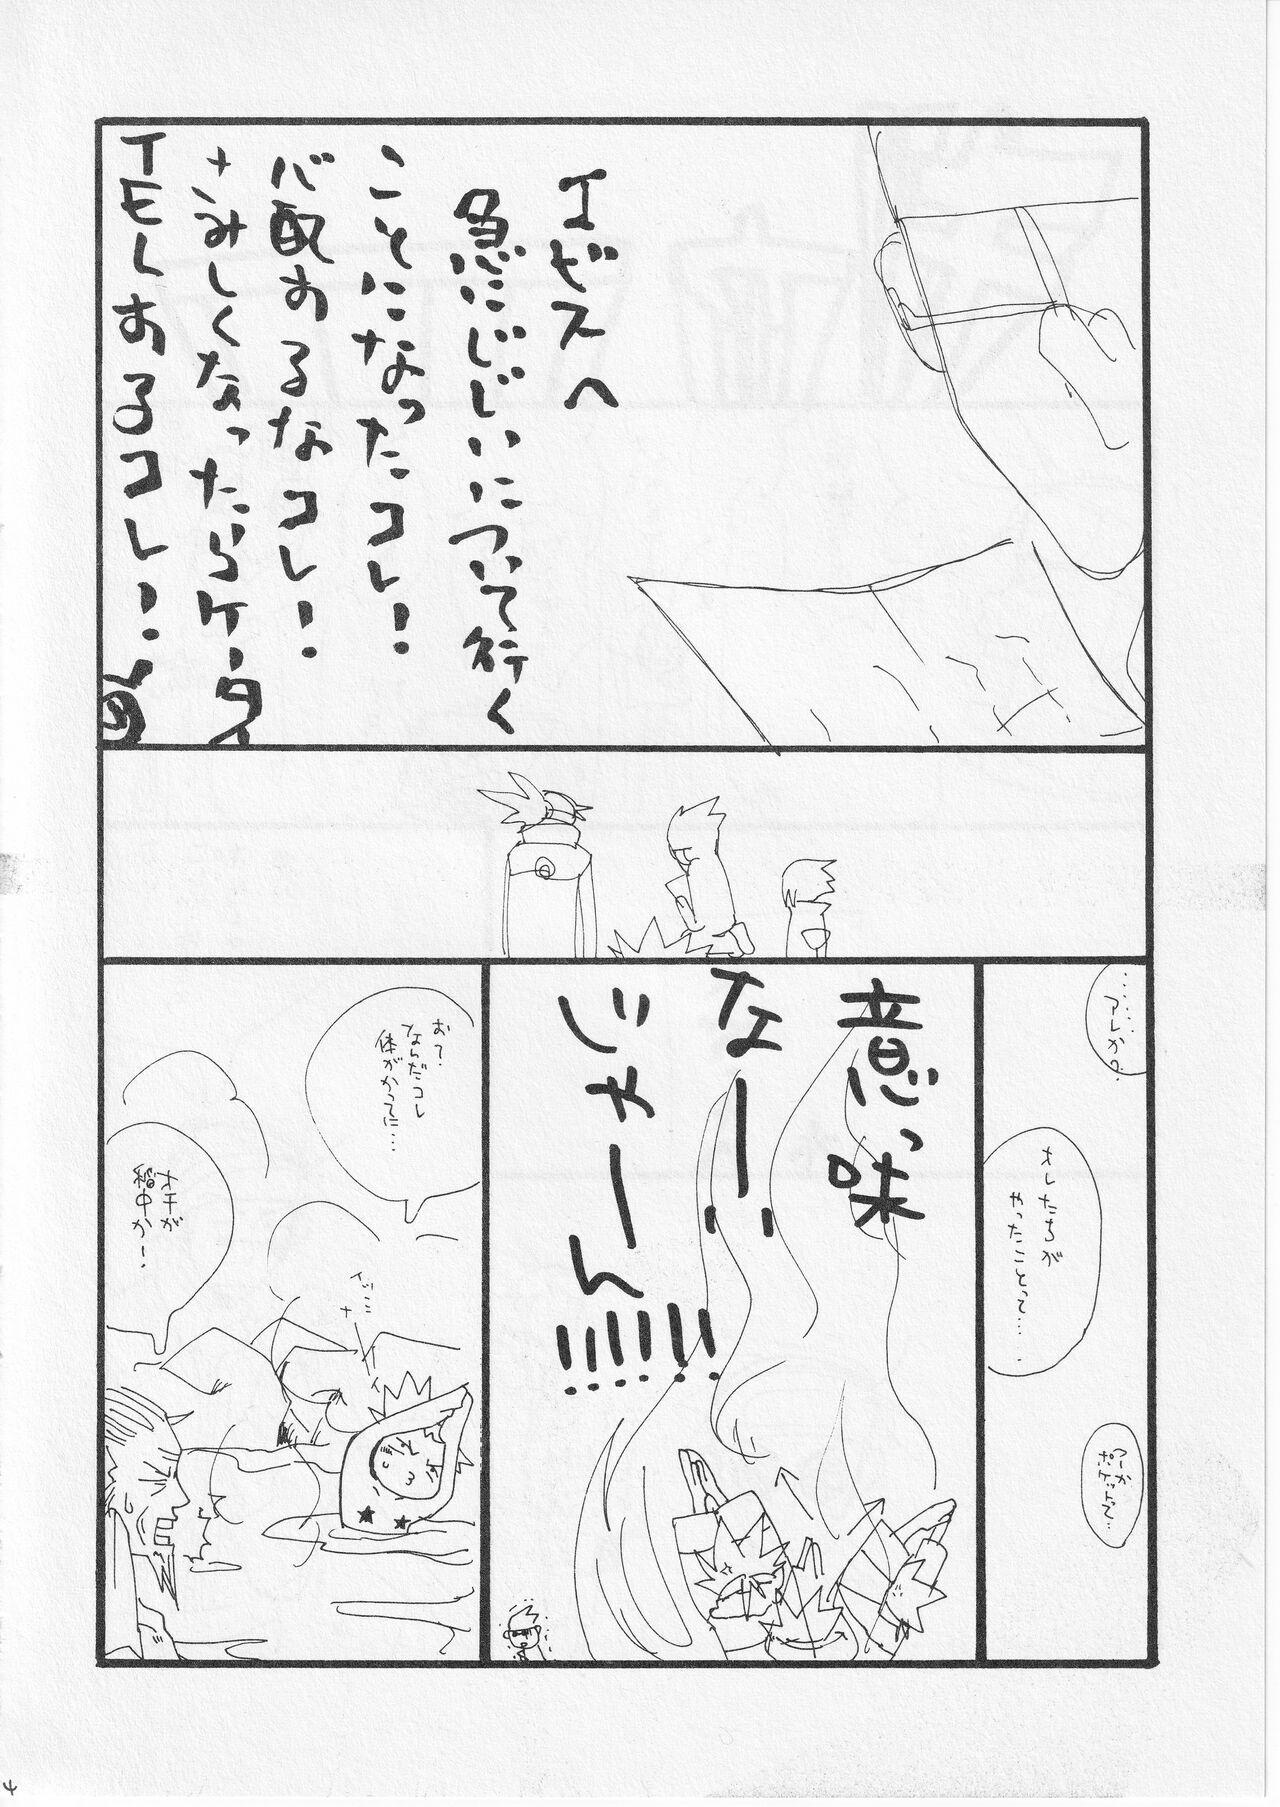 エビスへ
急にじじいについて行く
ことになったコレ!
心配するなコレ!
さみしくなったらケータイ
TELするコレ!
………アレかの。
オレたちが
やったことって……
意っ味
なーー!!
じゃーーん!!!!!!
おて、
ならだコレ
体がかってに…
オチが
稲中か!
4